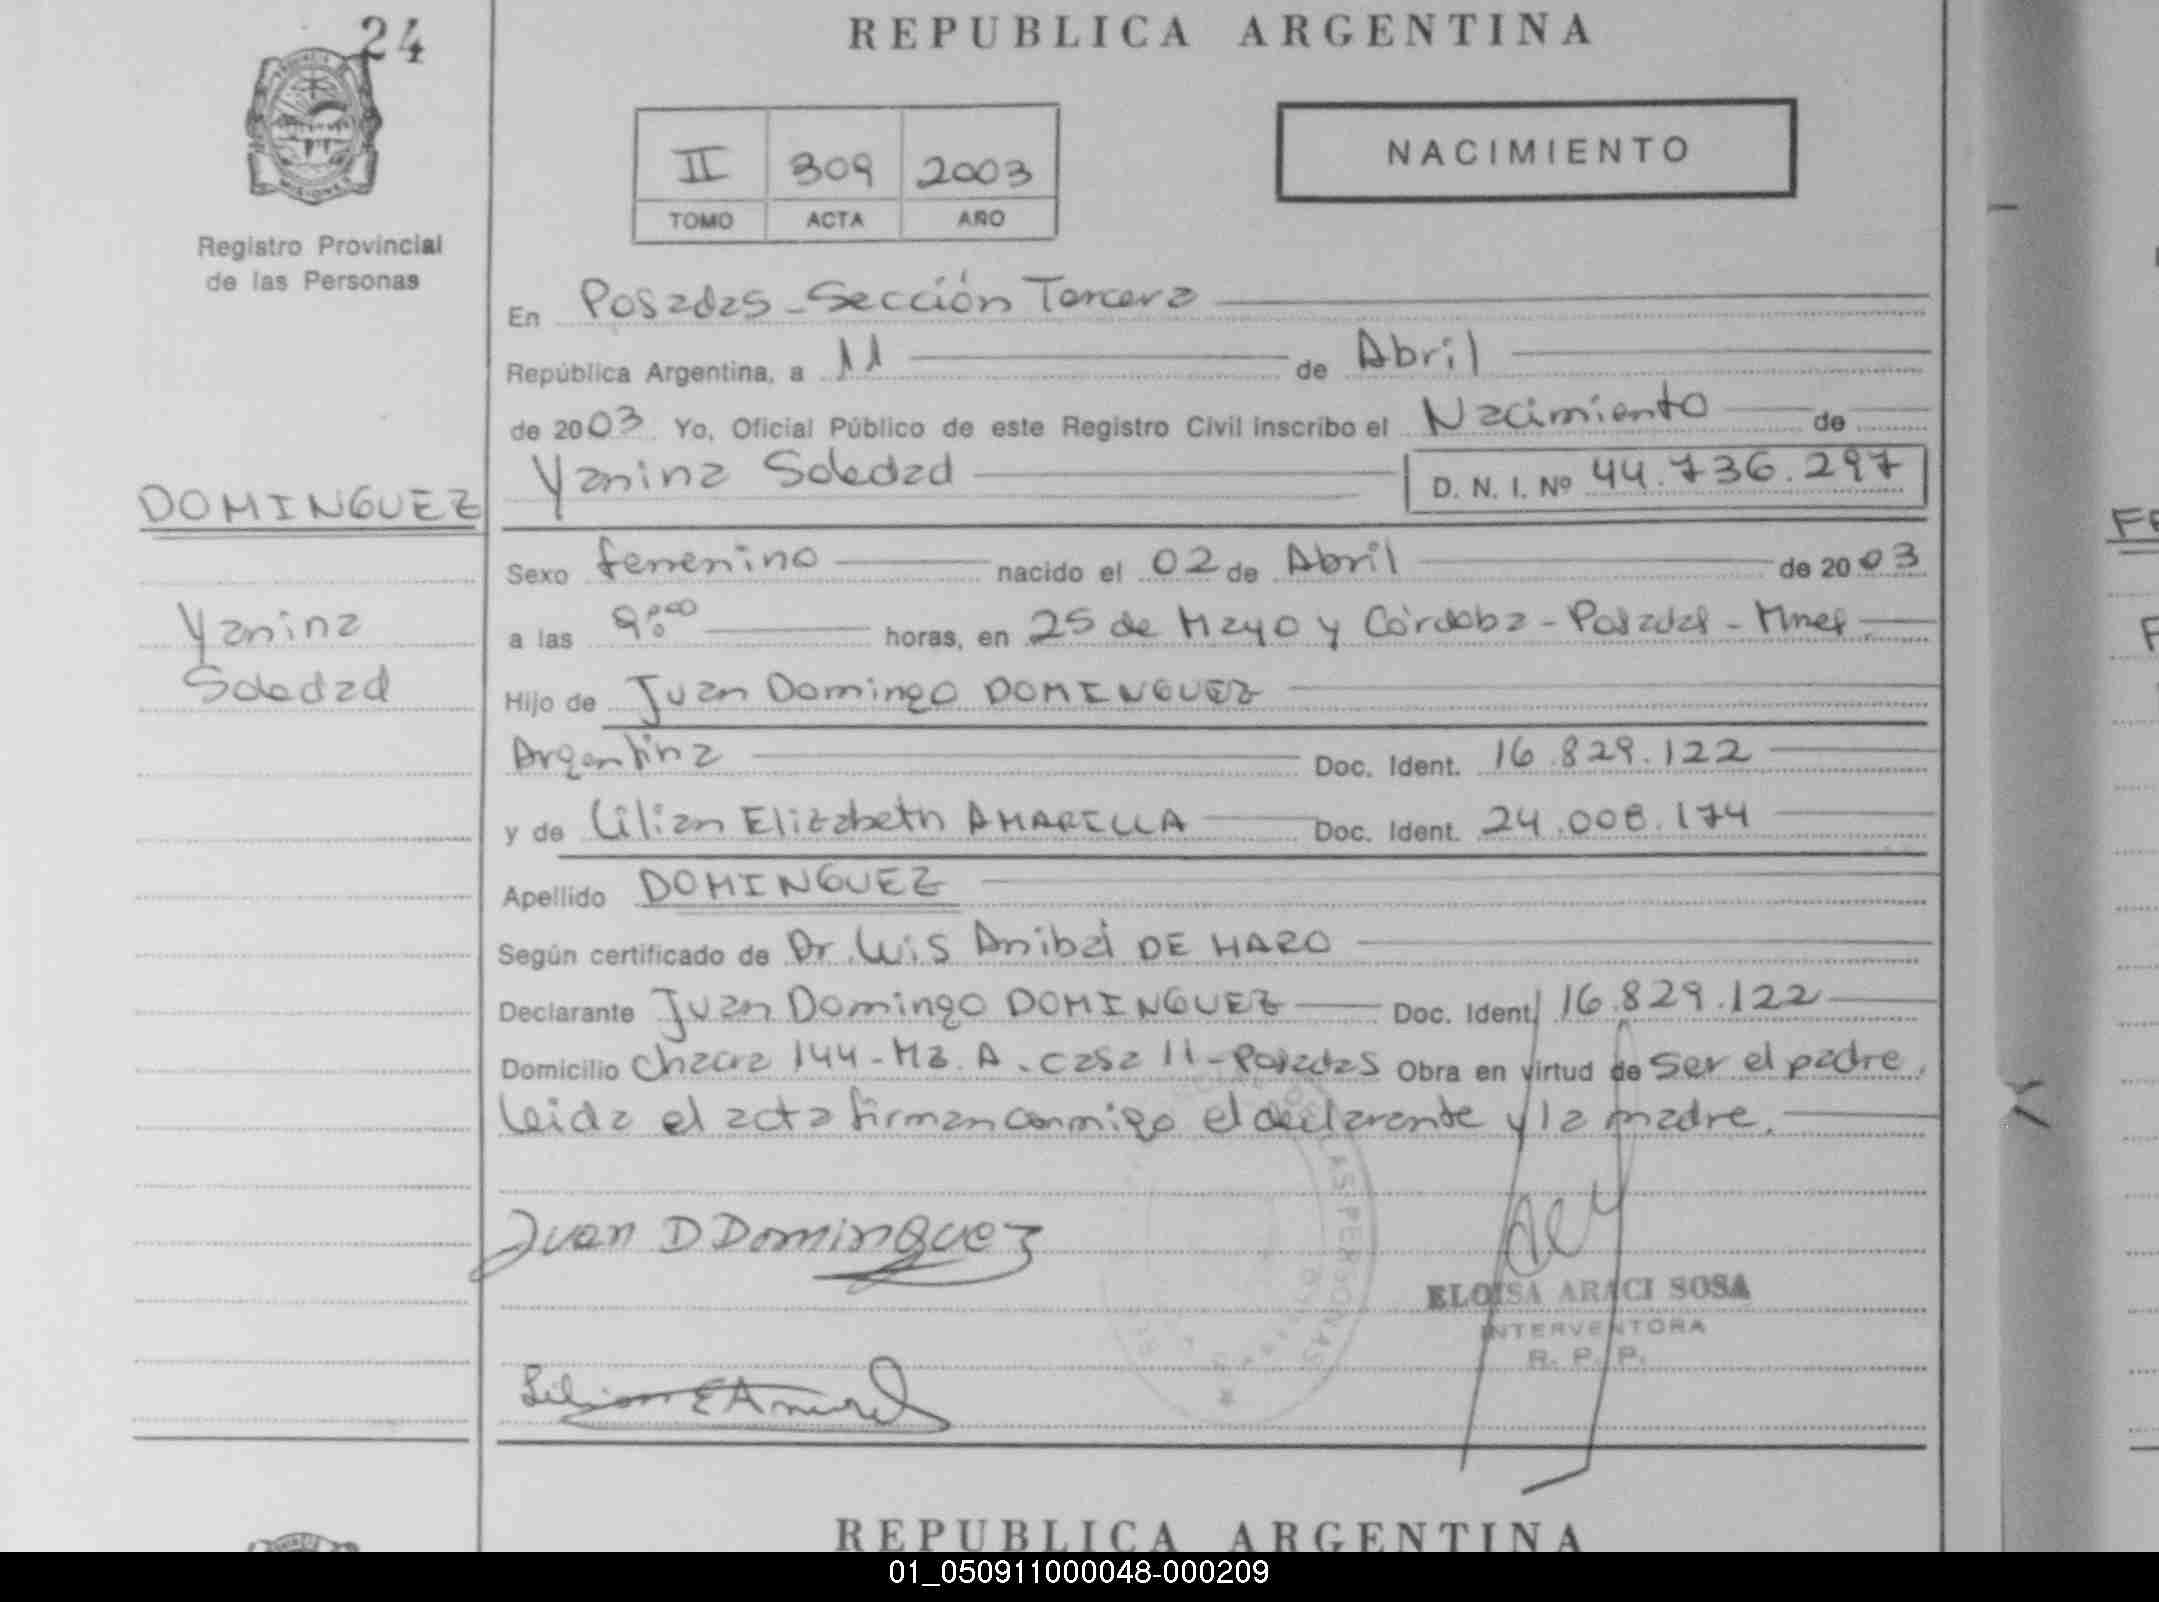 24
REPUBLICA ARGENTINA
II 309 2003
TOMO ACTA AÑO
NACIMIENTO
Registro Provincial
de las Personas
En Posadas - Sección Tercera
República Argentina, a 11 de Abril
de 2003 Yo, Oficial Público de este Registro Civil inscribo el Nacimiento de
Yanina Soledad D. N. I. Nº 44.736.297
DOMINGUEZ
Yanina
Soledad
Sexo femenino nacido el 02 de Abril de 2003
a las 9:00 horas, en 25 de Mayo y Córdoba - Posadas - Mnes.
Hijo de Juan Domingo DOMINGUEZ
Argentina Doc. Ident. 16.829.122
y de Lilian Elizabeth AMARILLA Doc. Ident. 24.008.174
Apellido DOMINGUEZ
Según certificado de Dr. Luis Anibal DE HARO
Declarante Juan Domingo DOMINGUEZ Doc. Ident. 16.829.122
Domicilio Chacra 144 - Mz. A - casa 11 - Posadas Obra en virtud de ser el padre.
Leida el acta firman conmigo el declarante y la madre.
Juan D Dominguez
LAS PERSONAS
ELOISA ARACI SOSA
INTERVENTORA
R. P. P.
Lilian E
REPUBLICA ARGENTINA
01_050911000048-000209